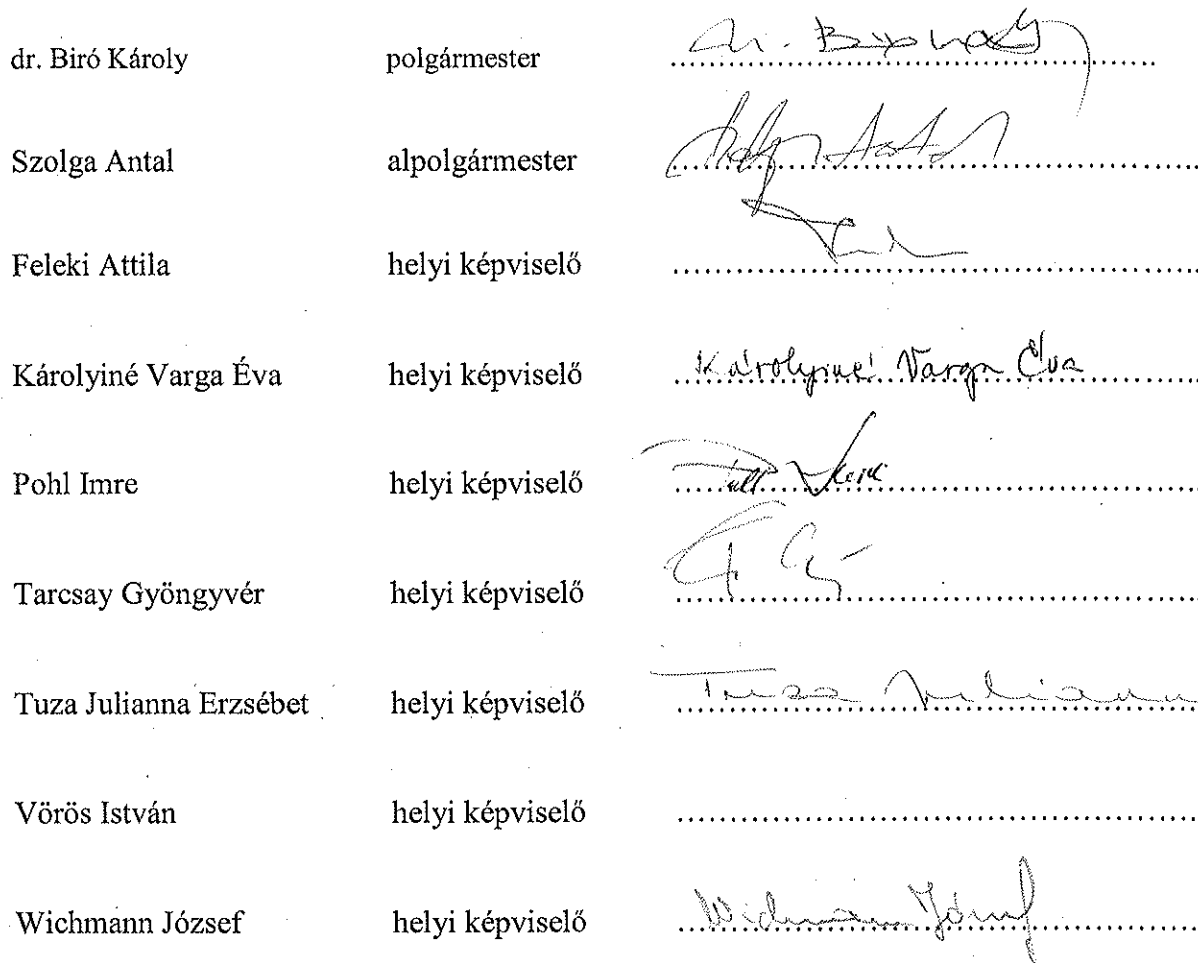 dr. Biró Károly polgármester dr. Biró Károly
Szolga Antal alpolgármester
Feleki Attila helyi képviselő
Károlyiné Varga Éva helyi képviselő Károlyiné Varga Éva
Pohl Imre helyi képviselő
Tarcsay Gyöngyvér helyi képviselő
Tuza Julianna Erzsébet helyi képviselő Tuza Julianna
Vörös István helyi képviselő
Wichmann József helyi képviselő Wichmann József